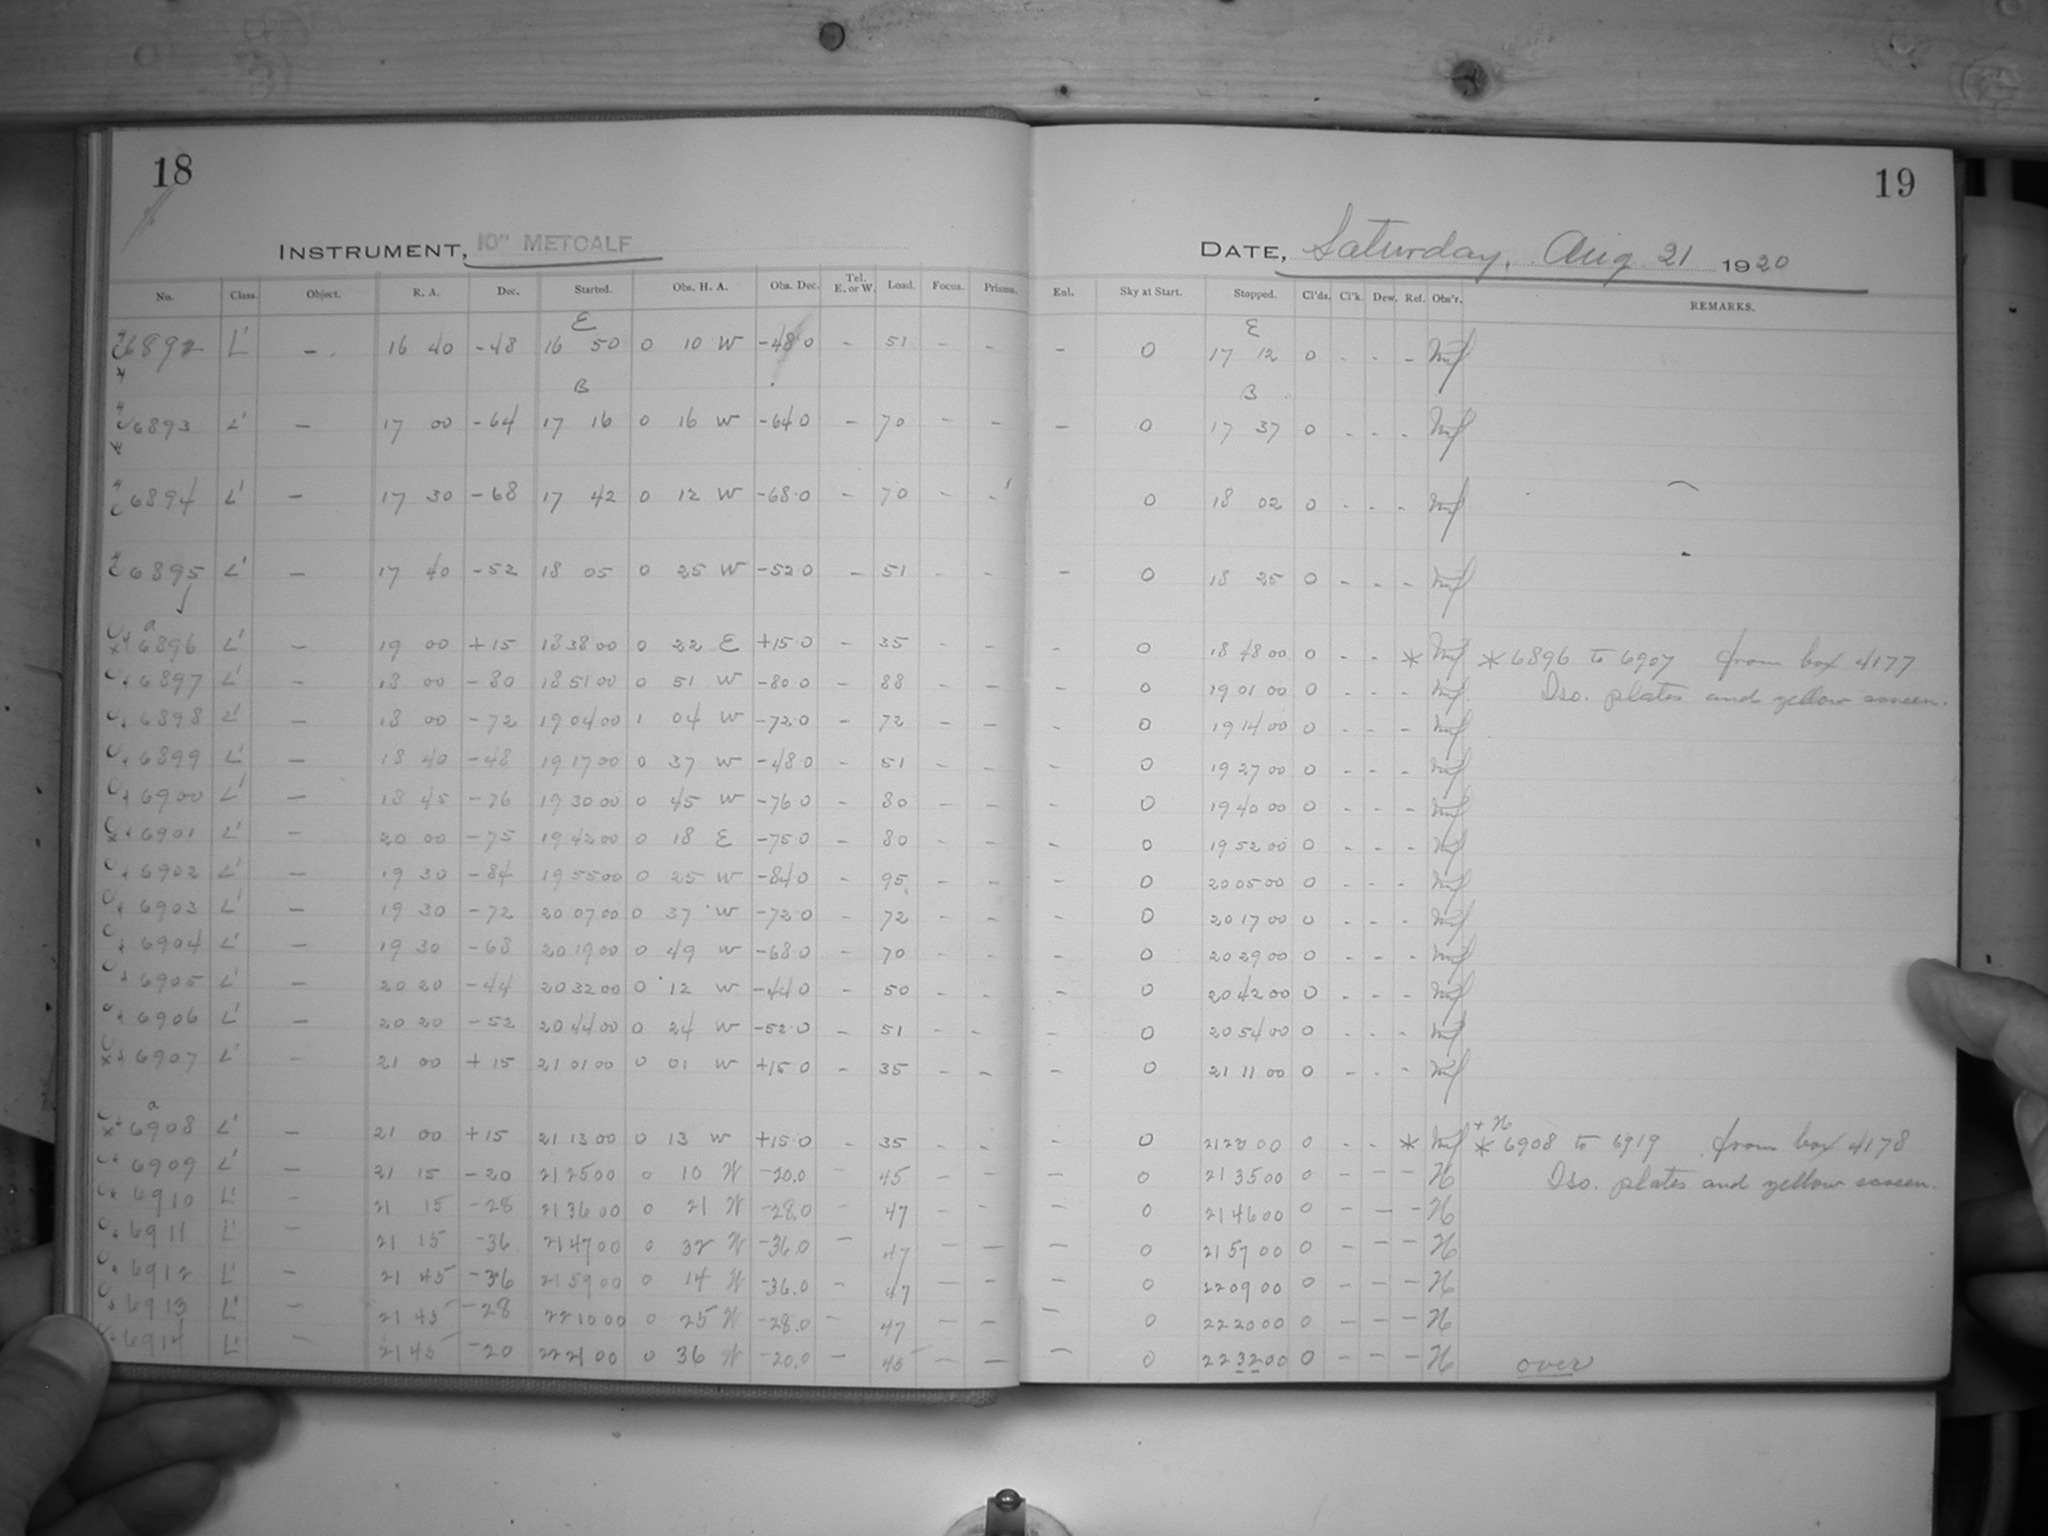 18
19
INSTRUMENT, 10" METCALF
DATE, Saturday, Aug 21 1920
No. Class. Object. R. A. Dec. Started. Obs. H. A. Obs. Dec. Tel. E. or W. Load. Focus. Prisms. Enl. Sky at Start. Stopped. Cl'ds. Cl'k. Dew. Ref. Obs'r. REMARKS.
E E
6892 L' - 16 40 -48 16 50 0 10 W -48 0 - 51 - - - 0 17 12 0 - - -
B B
6893 L' - 17 00 -64 17 16 0 16 W -64 0 - 70 - - - 0 17 37 0 - - -
6894 L' - 17 30 -68 17 42 0 12 W -68.0 - 70 - - 0 18 02 0 - - -
6895 L' - 17 40 -52 18 05 0 25 W -52 0 - 51 - - - 0 18 25 0 - - -
a
6896 L' - 19 00 +15 18 38 00 0 22 E +15.0 - 35 - - - 0 18 48 00 0 - - * * 6896 to 6907 from box 4177
6897 L' - 18 00 -80 18 51 00 0 51 W -80.0 - 88 - - - 0 19 01 00 0 - - - Iso. plates and yellow screen.
6898 L' - 18 00 -72 19 04 00 1 04 W -72.0 - 72 - - - 0 19 14 00 0 - - -
6899 L' - 18 40 -48 19 17 00 0 37 W -48 0 - 51 - - - 0 19 27 00 0 - - -
6900 L' - 18 45 -76 19 30 00 0 45 W -76 0 - 80 - - - 0 19 40 00 0 - - -
6901 L' - 20 00 -75 19 42 00 0 18 E -75.0 - 80 - - - 0 19 52 00 0 - - -
6902 L' - 19 30 -84 19 55 00 0 25 W -84 0 - 95 - - - 0 20 05 00 0 - - -
6903 L' - 19 30 -72 20 07 00 0 37 W -72.0 - 72 - - - 0 20 17 00 0 - - -
6904 L' - 19 30 -68 20 19 00 0 49 W -68 0 - 70 - - - 0 20 29 00 0 - - -
6905 L' - 20 20 -44 20 32 00 0 12 W -44 0 - 50 - - - 0 20 42 00 0 - - -
6906 L' - 20 20 -52 20 44 00 0 24 W -52.0 - 51 - - - 0 20 54 00 0 - - -
6907 L' - 21 00 +15 21 01 00 0 01 W +15 0 - 35 - - - 0 21 11 00 0 - - -
a
6908 L' - 21 00 +15 21 13 00 0 13 W +15.0 - 35 - - - 0 21 23 00 0 - - * * 6908 to 6919 from box 4178
6909 L' - 21 15 -20 21 25 00 0 10 W -20.0 - 45 - - - 0 21 35 00 0 - - - H Iso. plates and yellow screen.
6910 L' - 21 15 -28 21 36 00 0 21 W -28.0 - 47 - - - 0 21 46 00 0 - - - H
6911 L' - 21 15 -36 21 47 00 0 32 W -36.0 - 47 - - - 0 21 57 00 0 - - - H
6912 L' - 21 45 -36 21 59 00 0 14 W -36.0 - 47 - - - 0 22 09 00 0 - - - H
6913 L' - 21 45 -28 22 10 00 0 25 W -28.0 - 47 - - - 0 22 20 00 0 - - - H
6914 L' - 21 45 -20 22 21 00 0 36 W -20.0 - 45 - - - 0 22 32 00 0 - - - H over